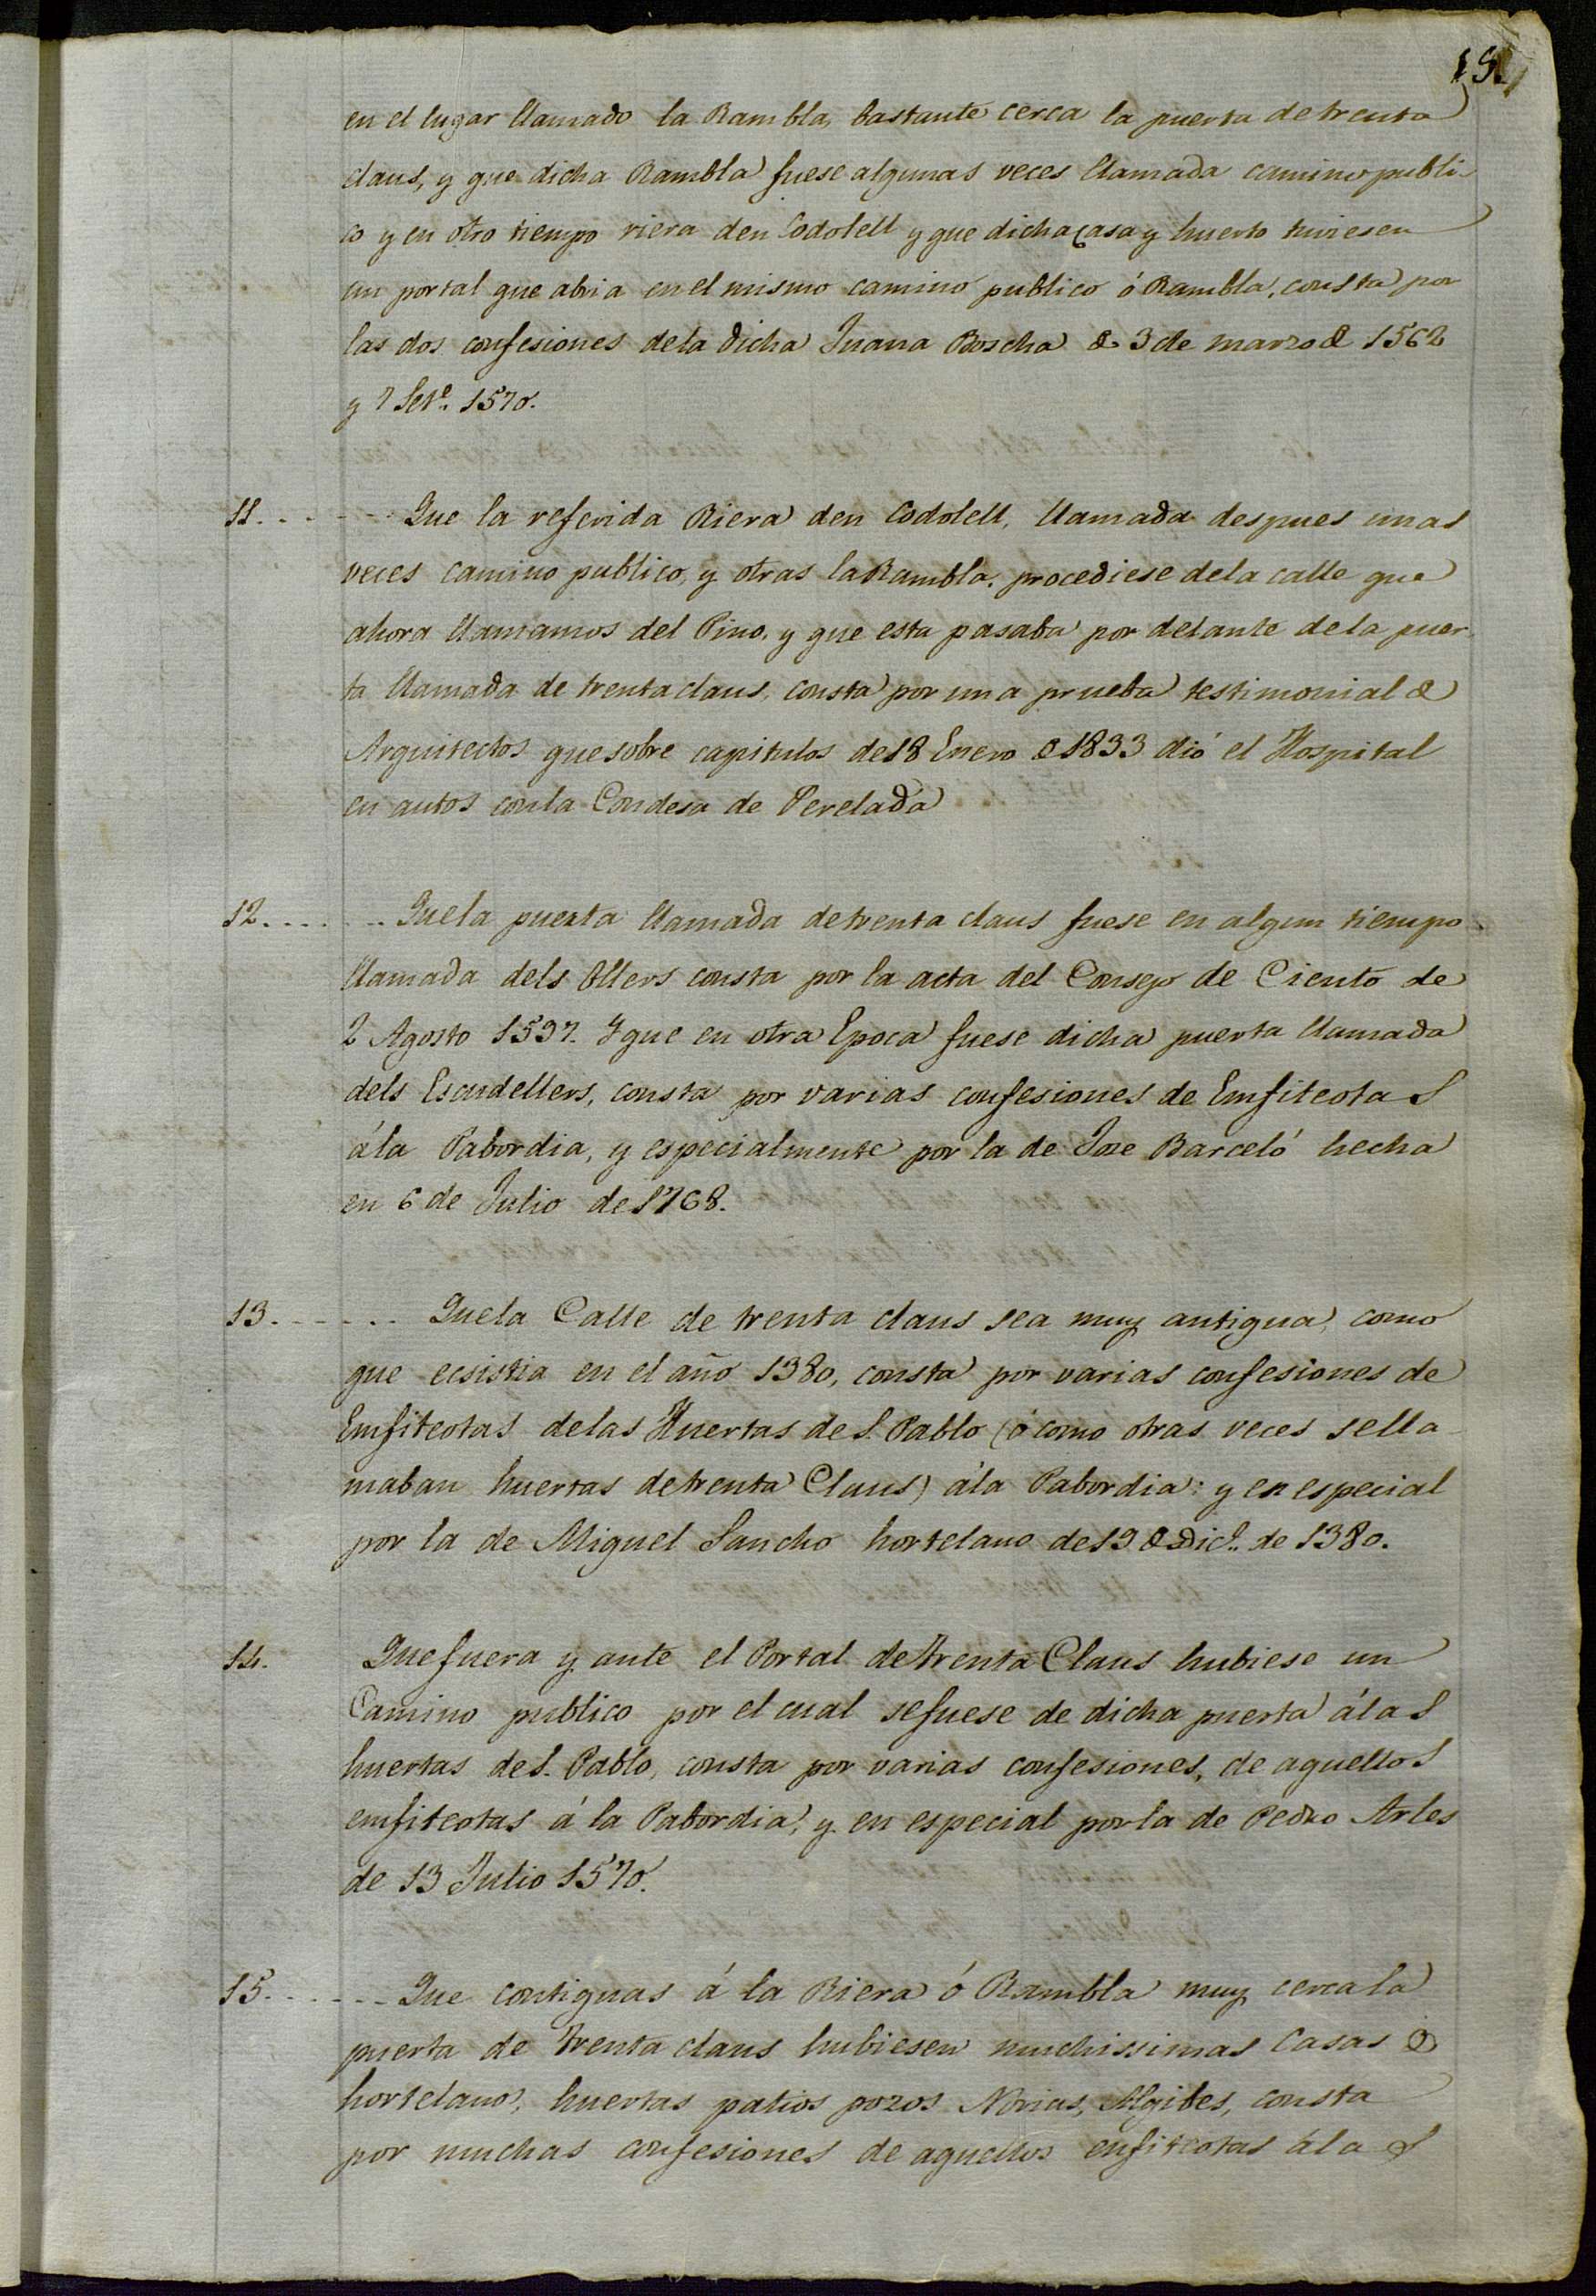 en el lugar llamado la Rambla, bastante cerca la puerta de trenta
claus, y que dicha Rambla fuese algunas veces llamada camino publi-
co y en otro tiempo riera den Codolell y que dicha casa y huerto tuviesen
un portal que abria en el mismo camino publico ó Rambla, consta por
las dos confesiones de la dicha Juana Boscha de 3 de marzo de 1562
y 7 Set.e 1570.
11. . . . . . Que la referida Riera den Codolell, llamada despues unas
veces camino publico, y otras la Rambla, procediese de la calle que
ahora llamamos del Pino, y que esta pasaba por delante de la puer-
ta llamada de trenta claus, consta por una prueba testimonial de
Arquitectos que sobre capitulos de 18 Enero de 1833 dió el Hospital
en autos con la Condesa de Perelada
12. . . . . . . Que la puerta llamada de trenta claus fuese en algun tiempo
llamada dels Ollers consta por la acta del Consejo de Ciento de
2 Agosto 1597. Y que en otra Epoca fuese dicha puerta llamada
dels Escudellers, consta por varias confesiones de Emfiteotas
á la Pabordia, y especialmente por la de Jose Barceló hecha
en 6 de Julio de 1768.
13. . . . . . . Que la Calle de trenta claus sea muy antigua, como
que ecsistia en el año 1380, consta por varias confesiones de
Emfiteotas de las Huertas de S. Pablo (ó como otras veces se lla-
maban huertas de trenta Claus) á la Pabordia: y en especial
por la de Miguel Sancho hortelano de 19 de Dic.e de 1380.
14. Que fuera y ante el Portal de trenta Claus hubiese un
Camino publico por el cual se fuese de dicha puerta á las
huertas de S. Pablo, consta por varias confesiones, de aquellos
emfiteotas á la Pabordia, y en especial por la de Pedro Arles
de 13 Julio 1570.
15. . . . . . . Que contiguas á la Riera ó Rambla muy cerca la
puerta de trenta claus hubiesen muchissimas Casas de
hortelano, huertas patios pozos Norias, Algibes, consta
por muchas confesiones de aquellos enfiteotas á la